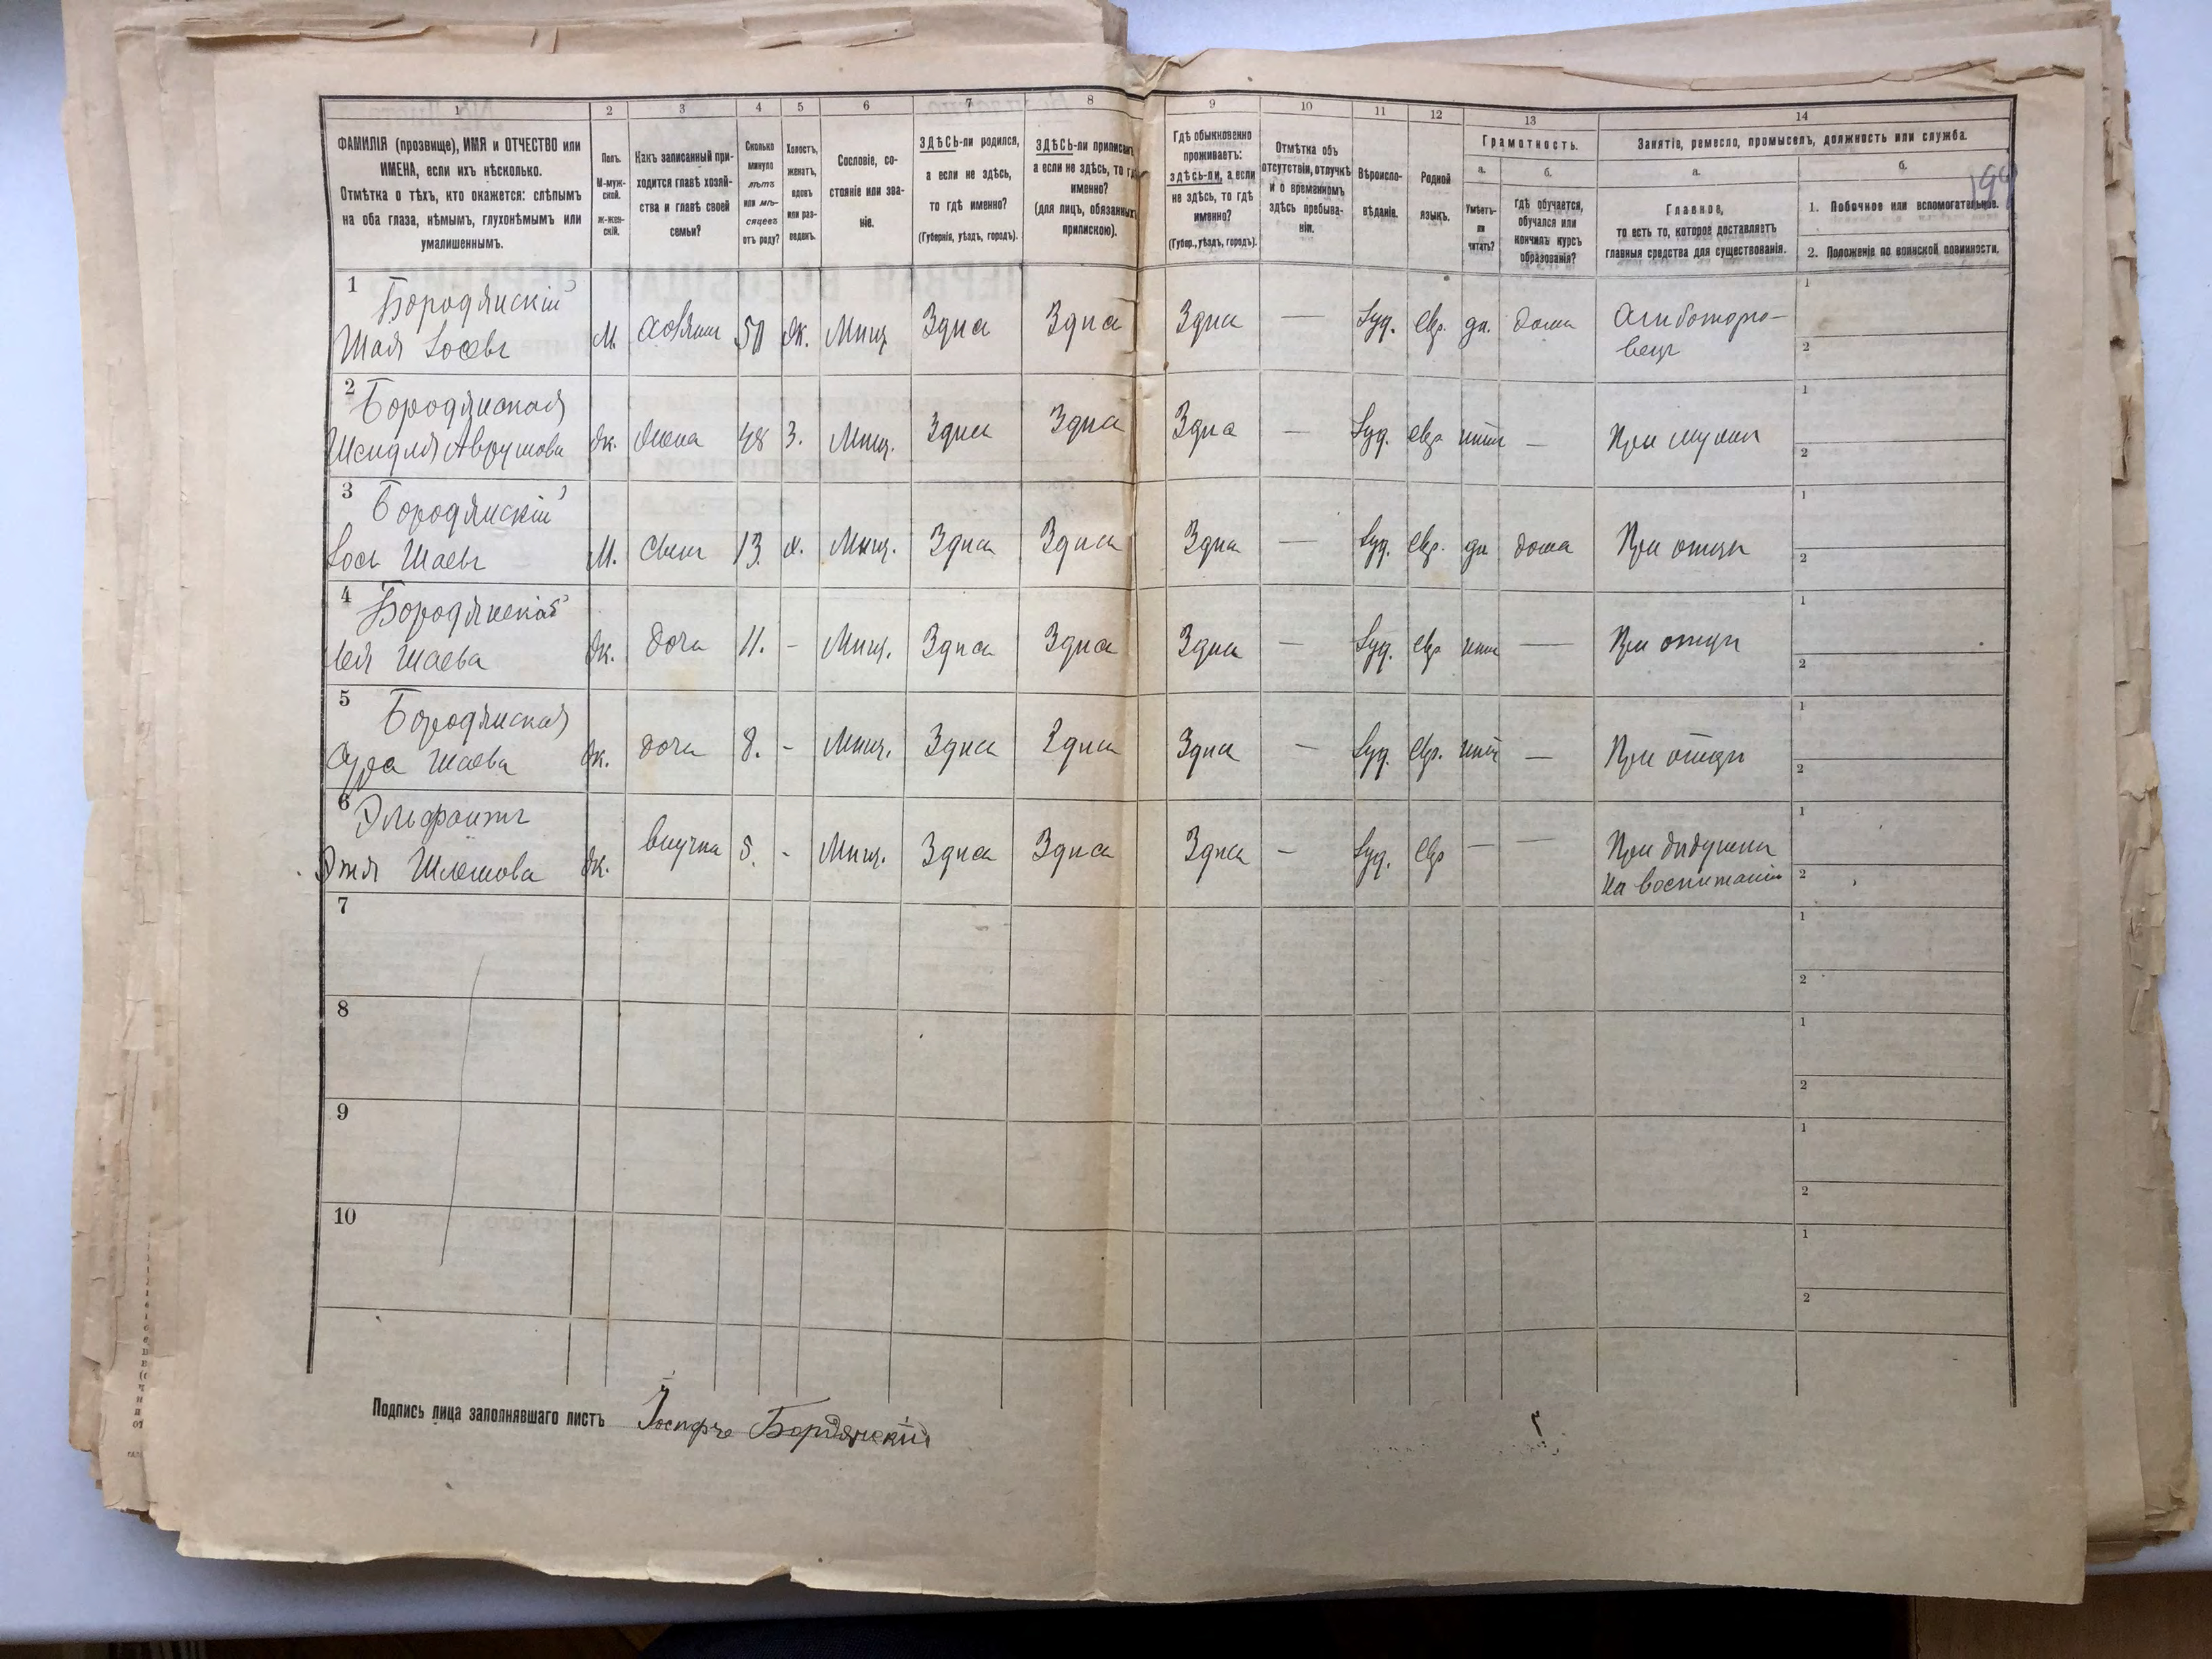 1 2 3 4 5 6 7 8 9 10 11 12 13 14
ФАМИЛІЯ (прозвище), ИМЯ и ОТЧЕСТВО или
ИМЕНА, если ихъ нѣсколько.
Отмѣтка о тѣхъ, кто окажется: слѣпымъ
на оба глаза, нѣмымъ, глухонѣмымъ или
умалишеннымъ.
Полъ.
М-муж-
ской.
ж-жен-
скій.
Какъ записанный при-
ходится главѣ хозяй-
ства и главѣ своей
семьи?
Сколько
минуло
лѣтъ
или мѣ-
сяцевъ
отъ роду?
Холостъ,
женатъ,
вдовъ
или раз-
веденъ.
Сословіе, со-
стояніе или зва-
ніе.
ЗДѢСЬ-ли родился,
а если не здѣсь,
то гдѣ именно?
(Губернія, уѣздъ, городъ).
ЗДѢСЬ-ли приписанъ,
а если не здѣсь, то гдѣ
именно?
(для лицъ, обязанныхъ
припискою).
Гдѣ обыкновенно
проживаетъ:
здѣсь-ли, а если
не здѣсь, то гдѣ
именно?
(Губер., уѣздъ, городъ).
Отмѣтка объ
отсутствіи, отлучкѣ
и о временномъ
здѣсь пребыва-
ніи.
Вѣроиспо-
вѣданіе.
Родной
языкъ.
Грамотность.
а.
Умѣетъ-
ли
читать?
б.
гдѣ обучается,
обучался или
кончилъ курсъ
образованія?
Занятіе, ремесло, промыселъ, должность или служба.
а.
Главное,
то есть то, которое доставляетъ
главныя средства для существованія.
б.
1. Побочное или вспомогательное.
2. Положеніе по воинской повинности.
1 Бородянскій
Шая Іосевъ М. хозяин 50 ж. Мѣщ. Здѣсь Здѣсь Здѣсь — Іуд. евр. да. дома
2 Бородянская
Шейдля Аврумова ж. жена 48 З. Мѣщ. Здѣсь Здѣсь Здѣсь — Іуд. евр нѣтъ — При мужѣ
3 Бородянскій
Іось Шаевъ М. сынъ 13 х. Мѣщ. Здѣсь Здѣсь Здѣсь — Іуд. евр. да дома При отцѣ
4 Бородянская
Лея Шаева ж. дочь 11. - Мѣщ. Здѣсь Здѣсь Здѣсь — Іуд. евр нѣтъ — При отцѣ
5 Бородянская
Сура Шаева ж. дочь 8. - Мѣщ. Здѣсь Здѣсь Здѣсь — Іуд. евр. нѣтъ — При отцѣ
6 Эльфантъ
Этя Шлемова ж. внучка 5. - Мѣщ. Здѣсь Здѣсь Здѣсь - Іуд. евр — — При дѣдушкѣ
на воспитаніи
7
8
9
10
Подпись лица заполнявшаго листъ Іосифъ Бородянскій